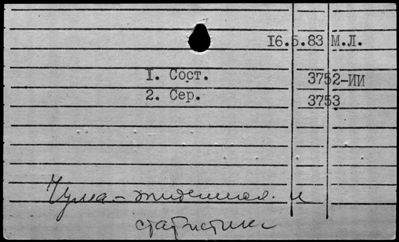 16.5.83 М.Л.
1. Сост. 3752-ИИ
2. Сер. 3753
Чума - эпидемиол. и
статистика